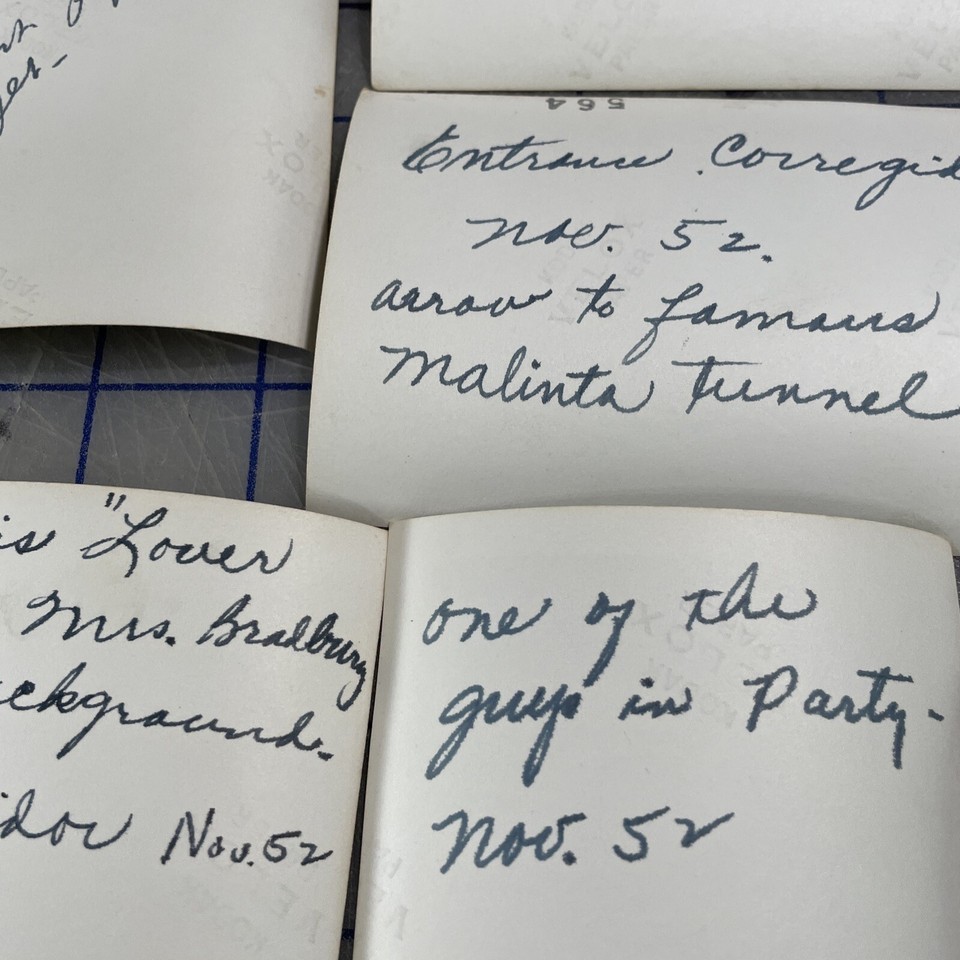 564
Entrance Corregid
Nov. 52.
arrow to famous
Malinta Tunnel
is "Lover
Mrs. Bradbury
ckground.
idor Nov. 52
one of the
guys in Party-
Nov. 52